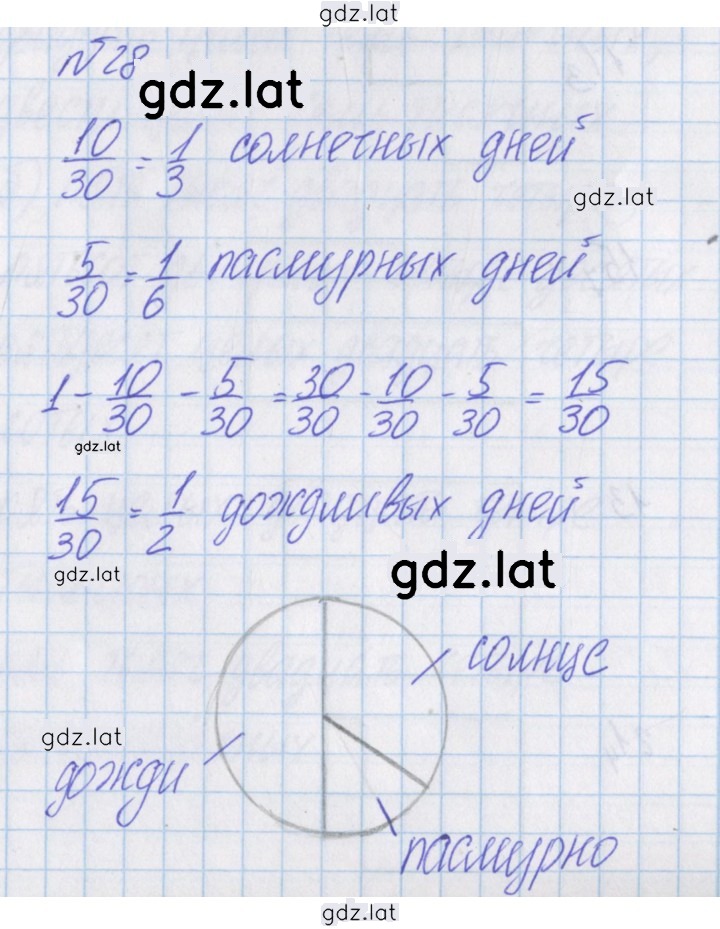 gdz.lat
№28
gdz.lat
10/30 = 1/3 солнечных дней
gdz.lat
5/30 = 1/6 пасмурных дней
1 - 10/30 - 5/30 = 30/30 - 10/30 - 5/30 = 15/30
gdz.lat
15/30 = 1/2 дождливых дней
gdz.lat
gdz.lat
солнце
gdz.lat
дожди
пасмурно
gdz.lat